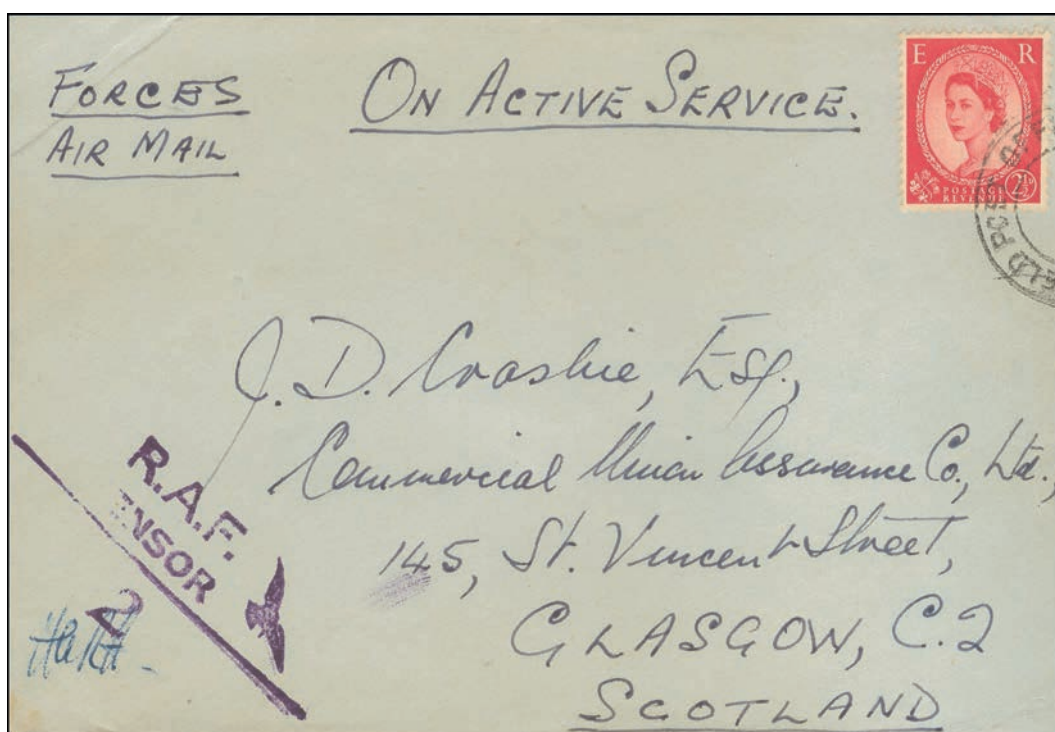 FORCES
AIR MAIL
ON ACTIVE SERVICE.
E R
POSTAGE
REVENUE
2½D
FIELD POST
J. D. Crosbie, Esq.,
Commercial Union Assurance Co., Ltd.,
145, St. Vincent Street,
GLASGOW, C.2
SCOTLAND
R.A.F.
ENSOR
2